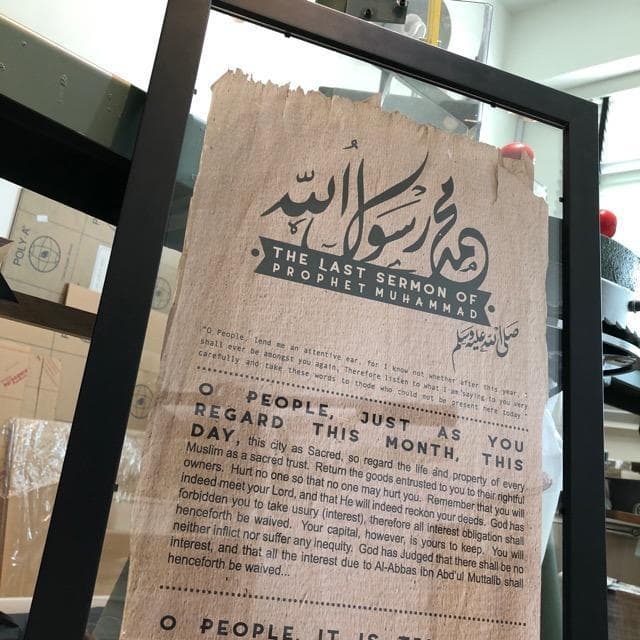 محمد رسول الله
THE LAST SERMON OF
PROPHET MUHAMMAD
صلى الله عليه وسلم
"O People, lend me an attentive ear, for I know not whether after this year, I
shall ever be amongst you again. Therefore listen to what I am saying to you very
carefully and take these words to those who could not be present here today.
O PEOPLE, JUST AS YOU
REGARD THIS MONTH, THIS
DAY, this city as Sacred, so regard the life and property of every
Muslim as a sacred trust. Return the goods entrusted to you to their rightful
owners. Hurt no one so that no one may hurt you. Remember that you will
indeed meet your Lord, and that He will indeed reckon your deeds. God has
forbidden you to take usury (interest), therefore all interest obligation shall
henceforth be waived. Your capital, however, is yours to keep. You will
neither inflict nor suffer any inequity. God has Judged that there shall be no
interest, and that all the interest due to Al-Abbas Ibn Abd'ul Muttalib shall
henceforth be waived...
O PEOPLE, IT IS